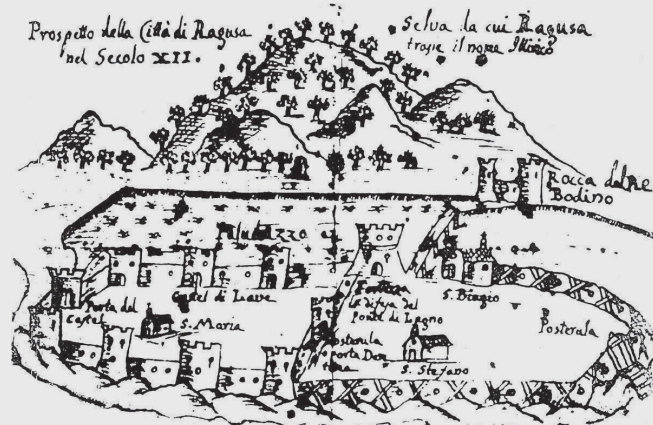 Prospetto della Città di Ragusa
nel Secolo XII.
Selva la cui Ragusa
trasse il nome Illirico
Rocca del Re
Bodino
Castel di Lave
Porta del
Castel
S. Maria
Fortezza
la difesa del
Ponte di Legno
S. Biagio
Posterula
Posterula
Porta
S. Stefano